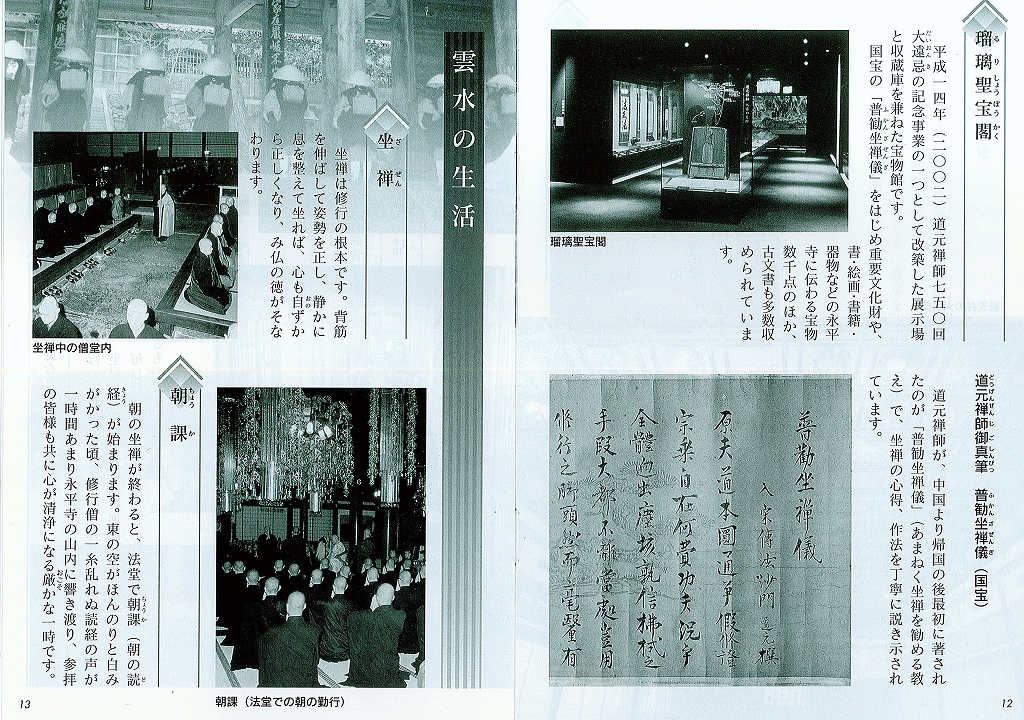 瑠璃聖宝閣
平成一四年（二〇〇二）道元禅師七五〇回
大遠忌の記念事業の一つとして改築した展示場
と収蔵庫を兼ねた宝物館です。
国宝の「普勧坐禅儀」をはじめ重要文化財や、
書・絵画・書籍・
器物などの永平
寺に伝わる宝物
数千点のほか、
古文書も多数収
められていま
す。
瑠璃聖宝閣
道元禅師御真筆　普勧坐禅儀（国宝）
道元禅師が、中国より帰国の後最初に著され
たのが「普勧坐禅儀」（あまねく坐禅を勧める教
え）で、坐禅の心得、作法を丁寧に説き示され
ています。
普勧坐禪儀
入宋傳法沙門道元撰
原夫道本圓通爭假修證
宗乘自在何費功夫況乎
全體逈出塵埃孰信拂拭之
手段大都不離當處豈用
修行之脚頭然而毫釐有
12
雲水の生活
坐禅
坐禅は修行の根本です。背筋
を伸ばして姿勢を正し、静かに
息を整えて坐れば、心も自ずか
ら正しくなり、み仏の徳がそな
わります。
坐禅中の僧堂内
朝課
朝の坐禅が終わると、法堂で朝課（朝の読
経）が始まります。東の空がほんのりと白み
がかった頃、修行僧の一糸乱れぬ読経の声が
一時間あまり永平寺の山内に響き渡り、参拝
の皆様も共に心が清浄になる厳かな一時です。
朝課（法堂での朝の勤行）
13